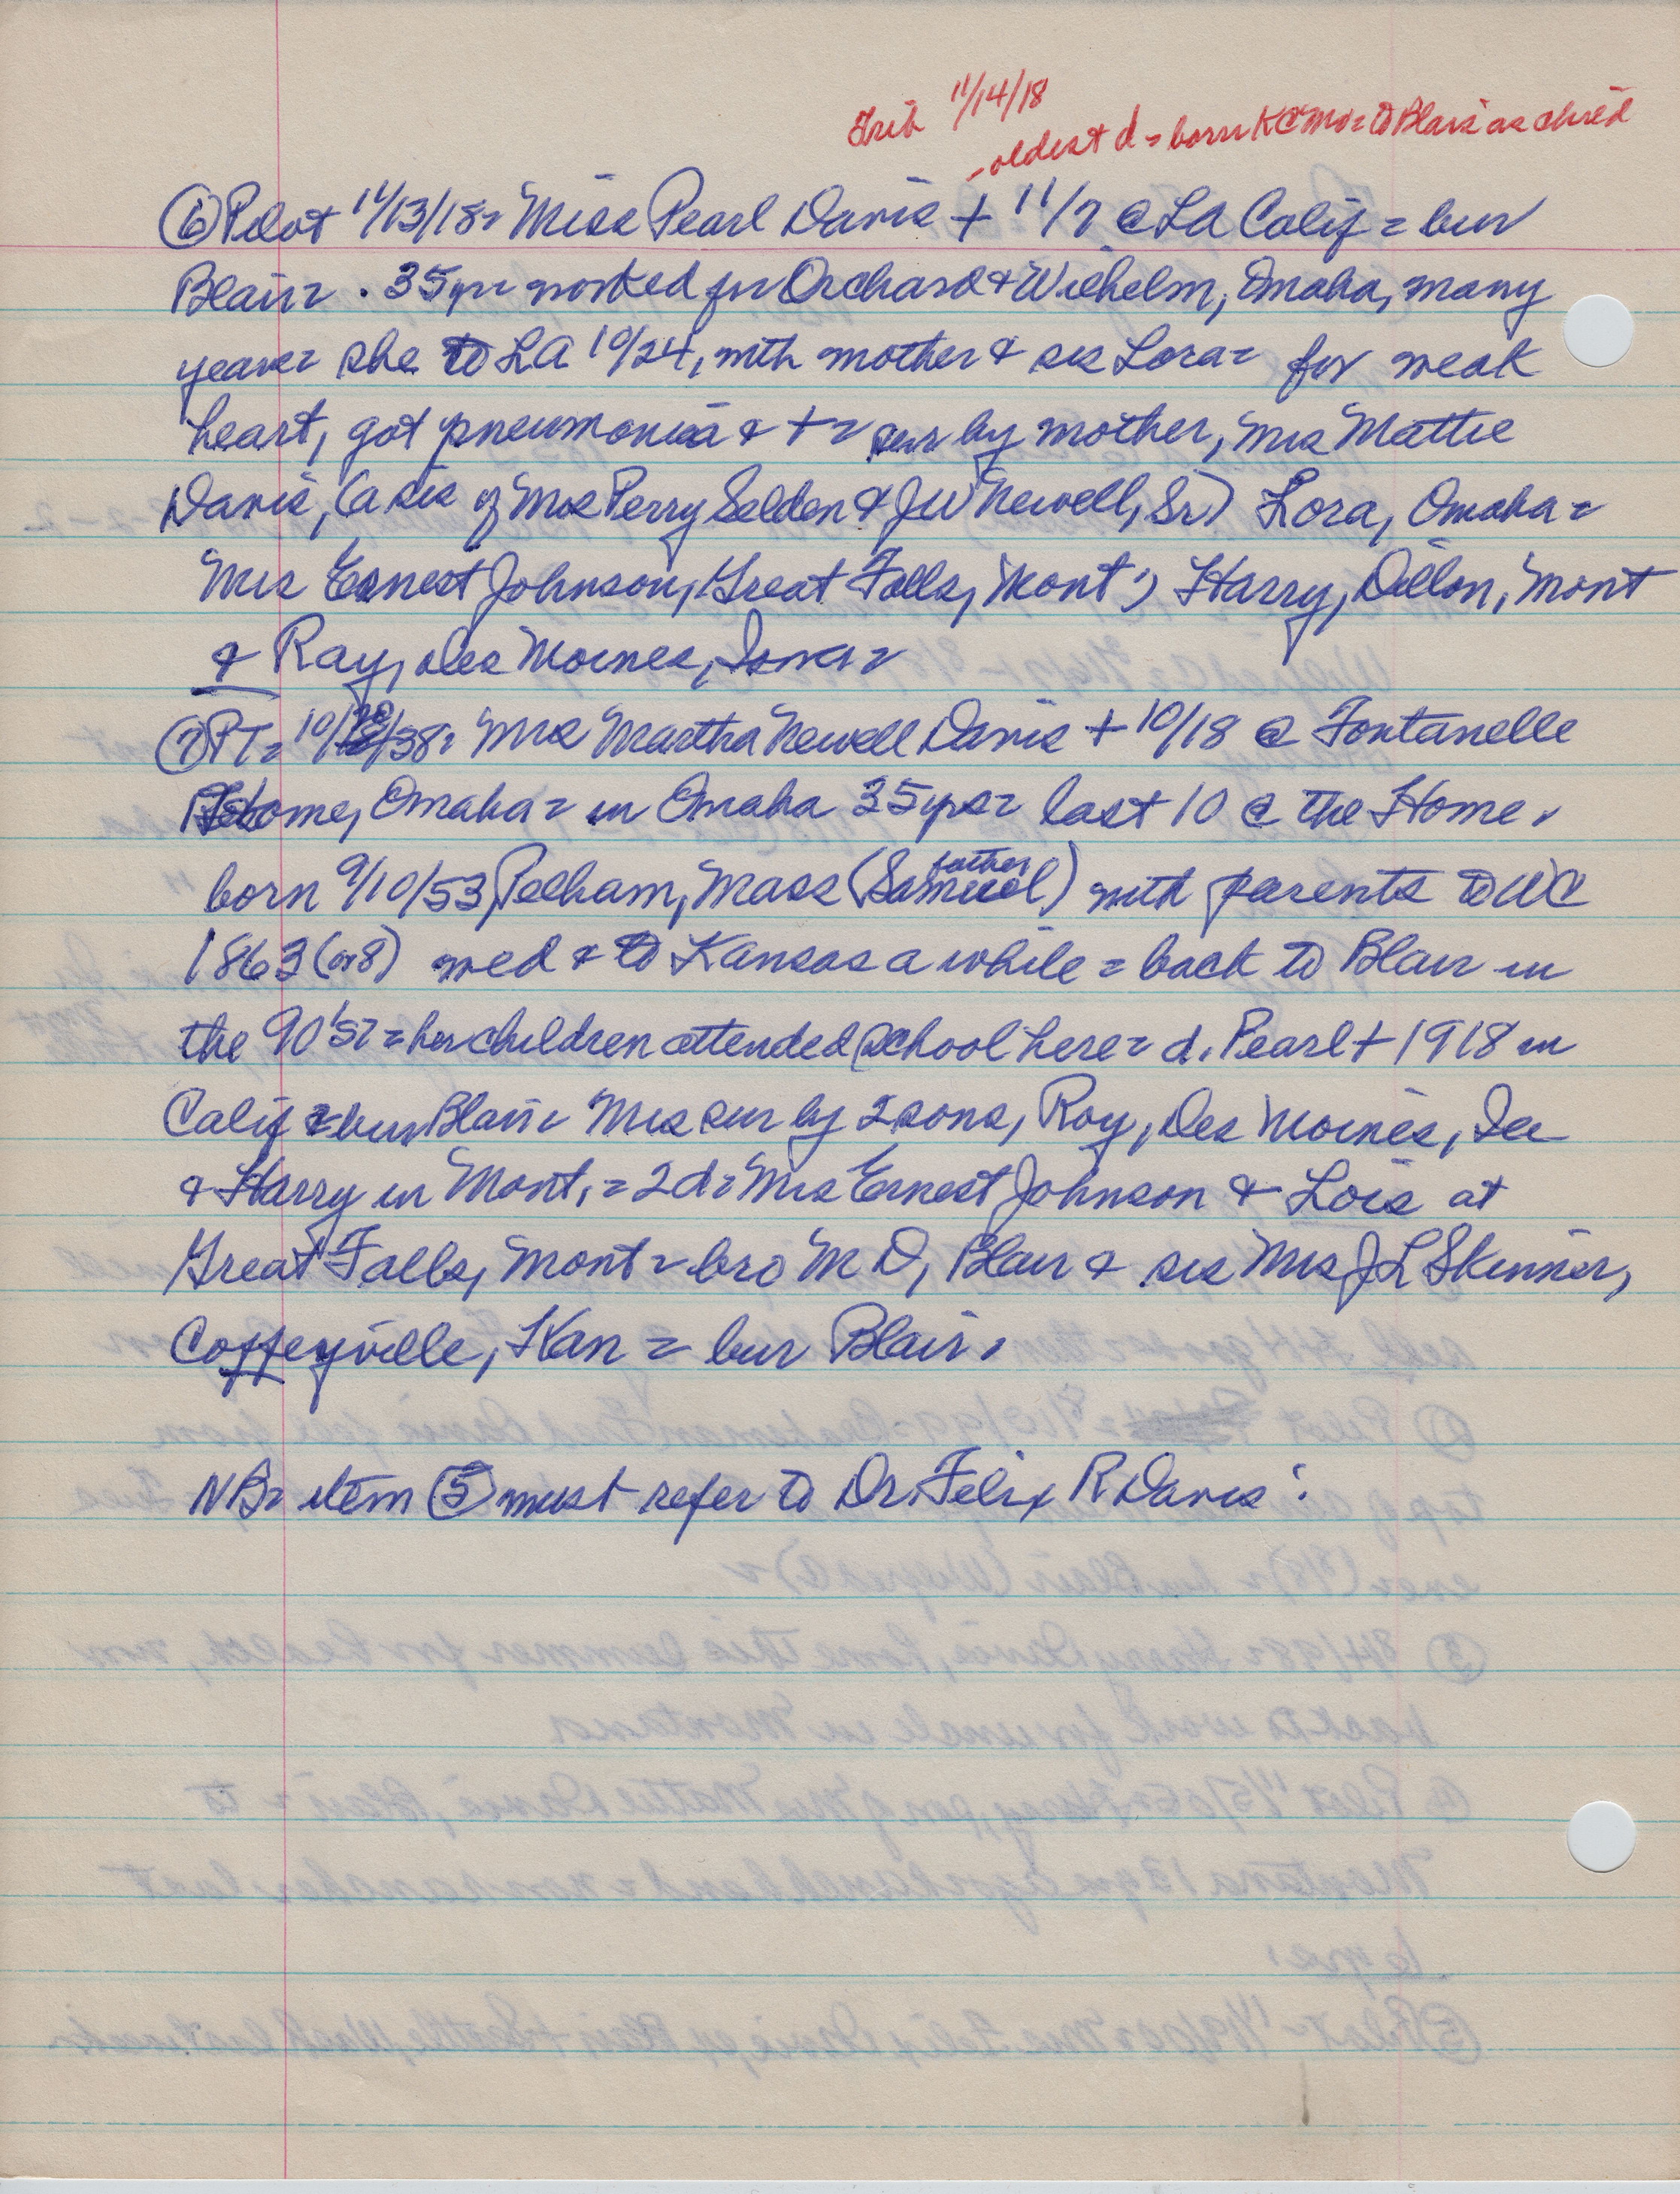 Trib 11/14/18
- oldest d = born KC Mo = to Blair as child
⑥ Pilot 11/13/18 = Miss Pearl Davis + 11/7 @ LA Calif = bur
Blair = . 35 yr = worked for Orchard & Wilhelm, Omaha, many
years = she to LA 10/24, with mother & sis Lora = for weak
heart, got pneumonia & + = sur by mother, Mrs Mattie
Davis, (a sis of Mrs Perry Selden & JW Newell, Sr) Lora, Omaha =
Mrs Ernest Johnson, Great Falls, Mont ; Harry, Dillon, Mont
& Ray, Des Moines, Iowa =
⑦ PT = 10/20/38 = Mrs Martha Newell Davis + 10/18 @ Fontanelle
Home, Omaha = in Omaha 35 yrs = last 10 @ the Home.
born 9/10/53 Pelham, Mass (Samuel father) with parents to WC
1863 (or 8) wed & to Kansas a while = back to Blair in
the 90's = her children attended school here = d. Pearl + 1918 in
Calif = bur Blair = Mrs sur by 2 sons, Roy, Des Moines, Ia
& Harry in Mont, = 2 d = Mrs Ernest Johnson & Lois at
Great Falls, Mont = bro M D, Blair & sis Mrs J L Skinner,
Coffeyville, Kan = bur Blair.
NB = item ⑤ must refer to Dr. Felix R Davis :